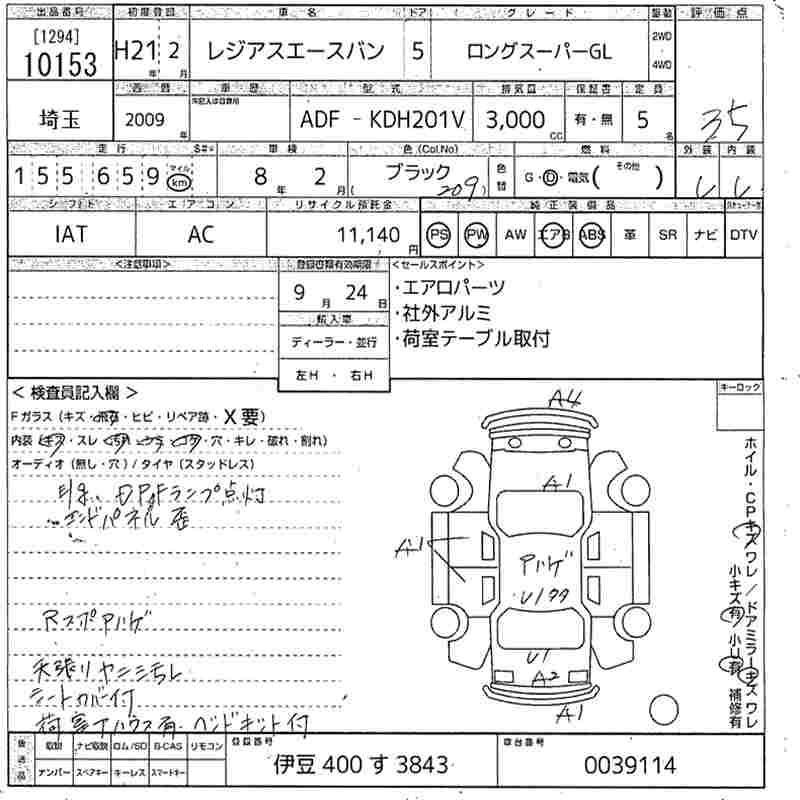 出品番号 初度登録 車名 ドア グレード 駆動 評価点
[1294]
10153 H21年 2月 レジアスエースバン 5 ロングスーパーGL 2WD 4WD
西暦 車歴 型式 排気量 保証書 定員
埼玉 2009年 ADF - KDH201V 3,000cc 有・無 5名 35
走行 車検 色(Col.No) 色替 燃料 外装 内装
155 659 マイル km 8年 2月 ブラック (209) G・D・電気( その他 )
シフト エアコン リサイクル預託金 純正装備品
IAT AC 11,140円 PS PW AW エアB ABS 革 SR ナビ DTV
<注意事項> 登録書類有効期限 <セールスポイント>
9月 24日
・エアロパーツ
・社外アルミ
・荷室テーブル取付
輸入車
ディーラー・並行
左H ・ 右H
< 検査員記入欄 > キーロック
Fガラス (キズ・飛石・ヒビ・リペア跡・X要)
内装 (キズ・スレ・穴・キレ・破れ・割れ)
オーディオ (無し・穴) / タイヤ (スタッドレス)
DPFランプ点灯
エンドパネル歪
RスポAハゲ
天張りヤニシミヨレ
シートカバー付
ベッドキット付
A4
A1
A1
Aハゲ
U1
A2
A1
ホイル・CPキズワレ/ドアミラーキズワレ
小キズ有 小U有 補修有
後送品 取説 ナビ取説 ロム/SD B-CAS リモコン 登録番号 車台番号
ナンバー スペアキー キーレス スマートキー 伊豆 400 す 3843 0039114